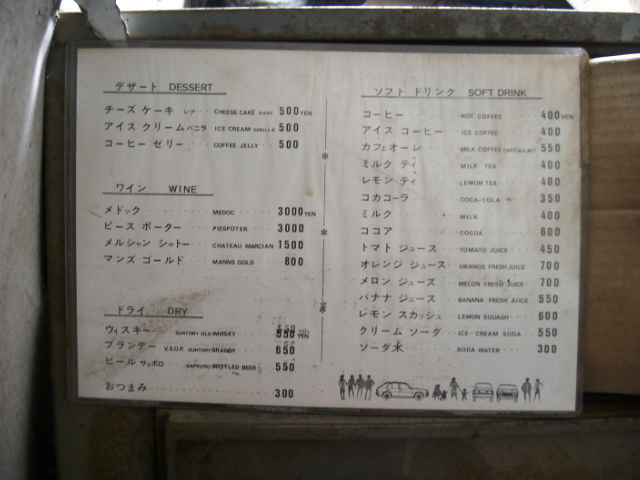 デザート DESSERT
チーズ ケーキ レア CHEESE CAKE RARE 500YEN
アイス クリーム バニラ ICE CREAM VANILLA 500
コーヒー ゼリー COFFEE JELLY 500
ワイン WINE
メドック MEDOC 3000YEN
ピース ポーター PIESPOTER 3000
メルシャン シャトー CHATEAU MARCIAN 1500
マンズ ゴールド MANNS GOLD 800
ドライ DRY
ウィスキー SUNTORY OLD WHISKY 550YEN
ブランデー V.S.O.P. SUNTORY BRANDY 650
ビール サッポロ SAPPORO BOTTLED BEER 550
おつまみ 300
ソフト ドリンク SOFT DRINK
コーヒー HOT COFFEE 400YEN
アイス コーヒー ICE COFFEE 400
カフェオーレ MILK COFFEE CAFÉ AU LAIT 550
ミルク ティ MILK TEA 400
レモン ティ LEMON TEA 400
コカコーラ COCA-COLA 350
ミルク MILK 400
ココア COCOA 600
トマト ジュース TOMATO JUICE 450
オレンジ ジュース ORANGE FRESH JUICE 700
メロン ジュース MELON FRESH JUICE 700
バナナ ジュース BANANA FRESH JUICE 550
レモン スカッシュ LEMON SQUASH 600
クリーム ソーダ ICE-CREAM SODA 550
ソーダ水 SODA WATER 300